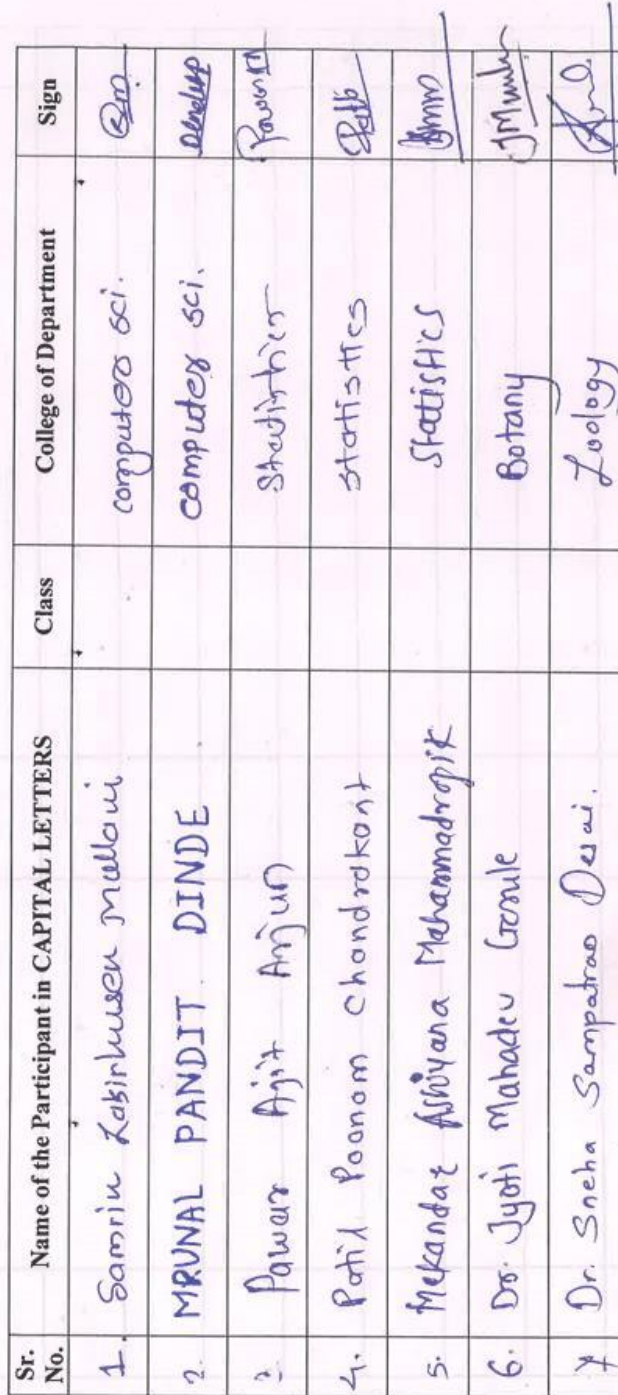 Sr. No. Name of the Participant in CAPITAL LETTERS Class College of Department Sign
1. Samrin Zakirhusen Mullani computer sci.
2. MRUNAL PANDIT. DINDE computer sci.
3 Pawar Ajit Arjun Statistics Pawar
4. Patil Poonam Chandrakant statistics
5. Mekandar Ashiyana Mahammadrafik Statistics
6. Dr. Jyoti Mahadev Gosule Botany
7 Dr. Sneha Sampatrao Desai. Zoology